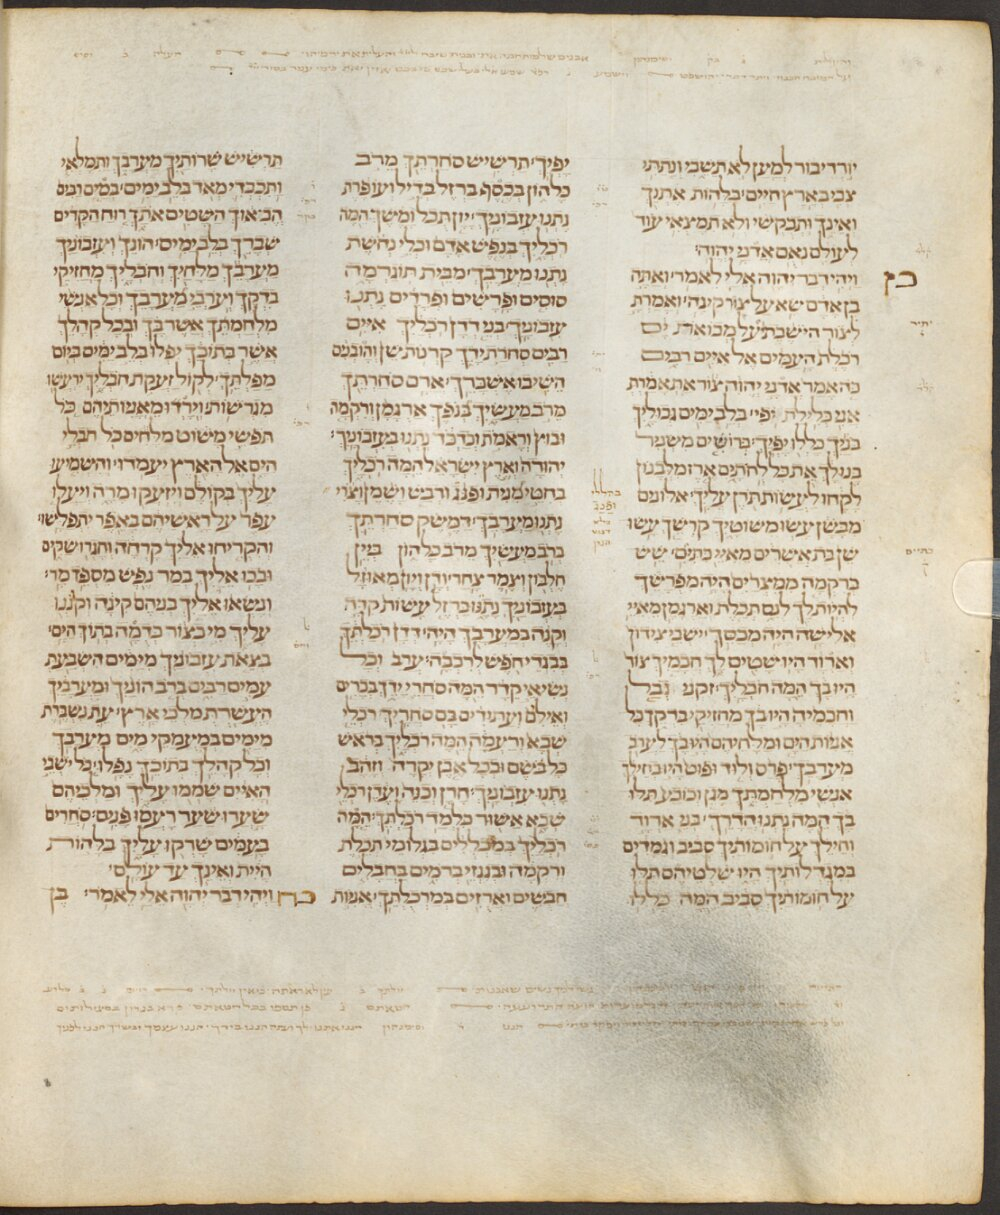 יורדי בור למען לא תשבי ונתתי
צבי בארץ חיים בלהות אתנך
ואינך ותבקשי ולא תמצאי עוד
לעולם נאם אדני יהוה׃
כז
ויהי דבר יהוה אלי לאמר׃ ואתה
בן אדם שא על צור קינה׃ ואמרת
לצור הישבתי על מבואת ים
רכלת העמים אל איים רבים
כה אמר אדני יהוה צור את אמרת
אני כלילת יפי׃ בלב ימים גבוליך
בניך כללו יפיך׃ ברושים משניר
בנו לך את כל לחתים ארז מלבנון
לקחו לעשות תרן עליך׃ אלונים
מבשן עשו משוטיך קרשך עשו
שן בת אשרים מאיי כתים׃ שש
ברקמה ממצרים היה מפרשך
להיות לך לנס תכלת וארגמן מאיי
אלישה היה מכסך׃ ישבי צידון
וארוד היו שטים לך חכמיך צור
היו בך המה חבליך׃ זקני גבל
וחכמיה היו בך מחזיקי בדקך כל
אניות הים ומלחיהם היו בך לערב
מערבך׃ פרס ולוד ופוט היו בחילך
אנשי מלחמתך מגן וכובע תלו
בך המה נתנו הדרך׃ בני ארוד
וחילך על חומותיך סביב וגמדים
במגדלותיך היו שלטיהם תלו
על חומותיך סביב המה כללו
יפיך׃ תרשיש סחרתך מרב
כל הון בכסף ברזל בדיל ועופרת
נתנו עזבוניך׃ יון תבל ומשך המה
רכליך בנפש אדם וכלי נחשת
נתנו מערבך׃ מבית תוגרמה
סוסים ופרשים ופרדים נתנו
עזבוניך׃ בני דדן רכליך איים
רבים סחרת ידך קרנות שן והובנים
השיבו אשכרך׃ ארם סחרתך
מרב מעשיך בנפך ארגמן ורקמה
ובוץ וראמת וכדכד נתנו בעזבוניך׃
יהודה וארץ ישראל המה רכליך
בחטי מנית ופנג ודבש ושמן וצרי
נתנו מערבך׃ דמשק סחרתך
ברב מעשיך מרב כל הון ביין
חלבון וצמר צחר׃ ודן ויון מאוזל
בעזבוניך נתנו ברזל עשות קדה
וקנה במערבך היה׃ דדן רכלתך
בבגדי חפש לרכבה׃ ערב וכל
נשיאי קדר המה סחרי ידך בכרים
ואילם ועתודים בם סחריך׃ רכלי
שבא ורעמה המה רכליך בראש
כל בשם ובכל אבן יקרה וזהב
נתנו עזבוניך׃ חרן וכנה ועדן רכלי
שבא אשור כלמד רכלתך׃ המה
רכליך במכללים בגלומי תכלת
ורקמה ובגנזי ברמים בחבלים
חבשים וארזים במרכלתך׃ אניות
תרשיש שרותיך מערבך ותמלאי
ותכבדי מאד בלב ימים׃ במים רבים
הביאוך השטים אתך רוח הקדים
שברך בלב ימים׃ הונך ועזבוניך
מערבך מלחיך וחבליך מחזיקי
בדקך וערבי מערבך וכל אנשי
מלחמתך אשר בך ובכל קהלך
אשר בתוכך יפלו בלב ימים ביום
מפלתך׃ לקול זעקת חבליך ירעשו
מגרשות׃ וירדו מאניותיהם כל
תפשי משוט מלחים כל חבלי
הים אל הארץ יעמדו׃ והשמיעו
עליך בקולם ויזעקו מרה ויעלו
עפר על ראשיהם באפר יתפלשו׃
והקריחו אליך קרחה וחגרו שקים
ובכו אליך במר נפש מספד מר׃
ונשאו אליך בניהם קינה וקוננו
עליך מי כצור כדמה בתוך הים׃
בצאת עזבוניך מימים השבעת
עמים רבים ברב הוניך ומערביך
העשרת מלכי ארץ׃ עת נשברת
מימים במעמקי מים מערבך
וכל קהלך בתוכך נפלו׃ כל ישבי
האיים שממו עליך ומלכיהם
שערו שער רעמו פנים׃ סחרים
בעמים שרקו עליך בלהות
היית ואינך עד עולם׃
כח
ויהי דבר יהוה אלי לאמר׃ בן